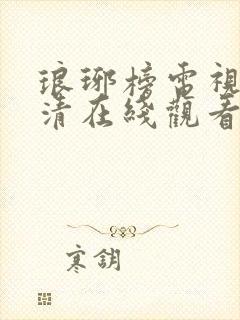 琅琊榜電視
清在綫觀看
寒鈅